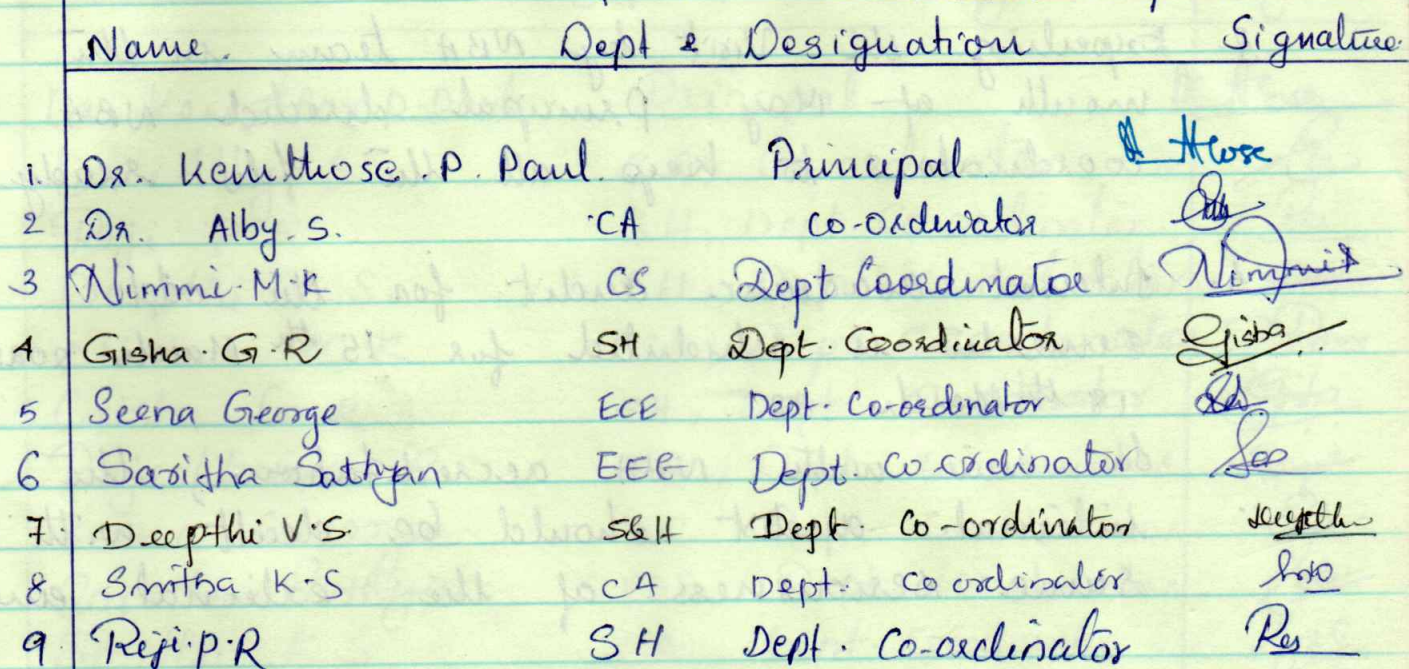 Name. Dept & Designation Signature
1. Dr. Kemthose. P. Paul. Principal
2 Dr. Alby. S. CA Co-ordinator
3 Nimmi. M. K CS Dept Coordinator Nimmi
4 Gisha. G. R SH Dept. Coordinator Gisha
5 Seena George ECE Dept. Co-ordinator
6 Saritha Sathyan EEE Dept. Co ordinator
7. Deepthi V. S. S&H Dept. Co-ordinator
8 Smitha K. S CA Dept. Co ordinator
9 Reji. P. R SH Dept. Co-ordinator